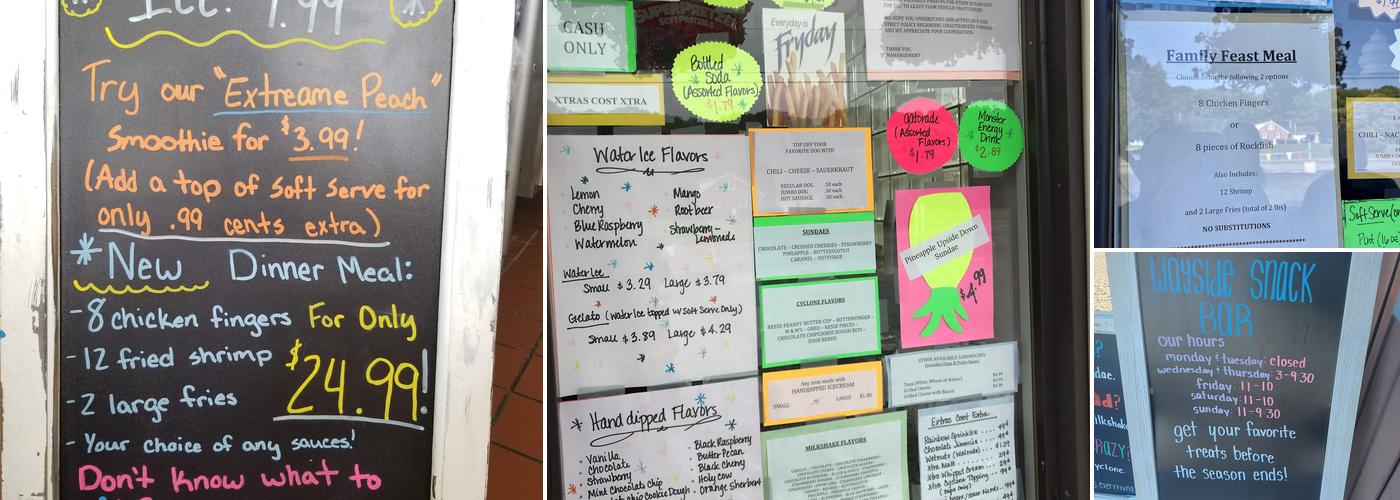 Try our "Extreame Peach"
Smoothie for $3.99!
(Add a top of soft serve for
only .99 cents extra)
*New Dinner Meal:
-8 chicken fingers For Only
-12 fried shrimp $24.99!
-2 large fries
-Your choice of any sauces!
Don't know what to
CASH
ONLY
XTRAS COST XTRA
SUPERPRETZEL
SOFT PRETZELS
Bottled
Soda
(Assorted Flavors)
$1.79
Everyday is
Fryday
WE HOPE YOU UNDERSTAND AND APPRECIATE OUR
STRICT POLICY REGARDING UNAUTHORIZED PARKING
AND WE APPRECIATE YOUR COOPERATION.
THANK YOU,
MANAGEMENT
Gatorade
(Assorted
Flavors)
$1.79
Monster
Energy
Drink
$2.89
Water Ice Flavors
Lemon
Cherry
Blue Raspberry
Watermelon
Mango
Rootbeer
Strawberry-
Lemonade
Water Ice
Small $3.29 Large $3.79
Gelato (Water Ice topped w/ Soft Serve Only)
Small $3.89 Large $4.29
TOP OFF YOUR
FAVORITE DOG WITH
CHILI - CHEESE - SAUERKRAUT
REGULAR DOG .50 each
JUMBO DOG .50 each
HOT SAUSAGE .50 each
SUNDAES
CHOCOLATE - CRUSHED CHERRIES - STRAWBERRY
PINEAPPLE - BUTTERSCOTCH
CARAMEL - HOTFUDGE
CYCLONE FLAVORS
REESE PEANUT BUTTER CUP - BUTTERFINGER -
M & M'S - OREO - REESE PIECES -
CHOCOLATE CHIPCOOKIE DOUGH BITS -
SOUR NERDS
Any item made with
HANDDIPPED ICECREAM
SMALL .75 LARGE $1.00
MILKSHAKE FLAVORS
Pineapple Upside Down
Sundae
$4.99
OTHER AVAILABLE SANDWICHES
(Includes Chips & Pickle Spear)
Tuna (White, Wheat or Kaiser)
Grilled Cheese
Grilled Cheese with Bacon
Hand dipped Flavors
Vanilla
Chocolate
Strawberry
Mint Chocolate Chip
Black Raspberry
Butter Pecan
Black Cherry
Holy Cow
Orange Sherbert
Extras Cost Extra
Rainbow Sprinkles
Chocolate Jimmies
Wetnuts (Walnuts)
Xtra Malt
Xtra Whipped Cream
Xtra Cyclone Topping
Family Feast Meal
Choose from the following 2 options
8 Chicken Fingers
or
8 pieces of Rockfish
Also Includes:
12 Shrimp
and 2 Large Fries (total of 2 lbs)
NO SUBSTITUTIONS
Wayside Snack
Bar
our hours
monday & tuesday: closed
wednesday & thursday: 3-9:30
friday: 11-10
saturday: 11-10
sunday: 11-9:30
get your favorite
treats before
the season ends!